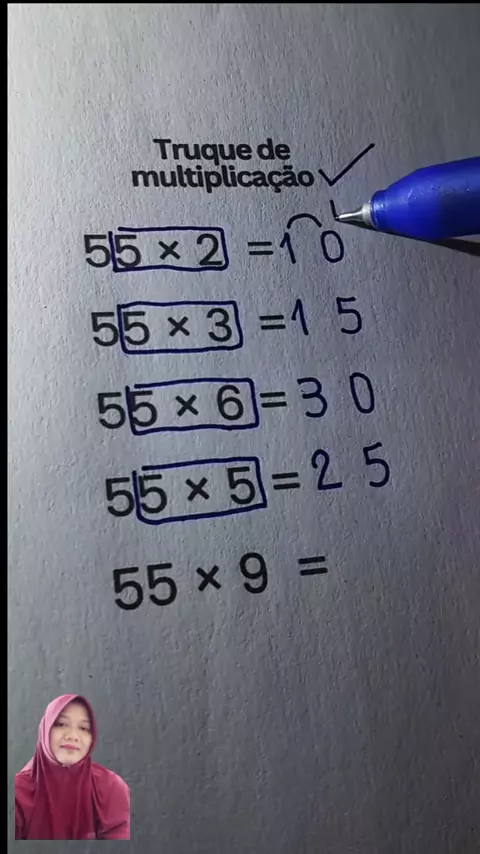 Truque de
multiplicação
55 × 2 = 1 0
55 × 3 = 1 5
55 × 6 = 3 0
55 × 5 = 2 5
55 × 9 =